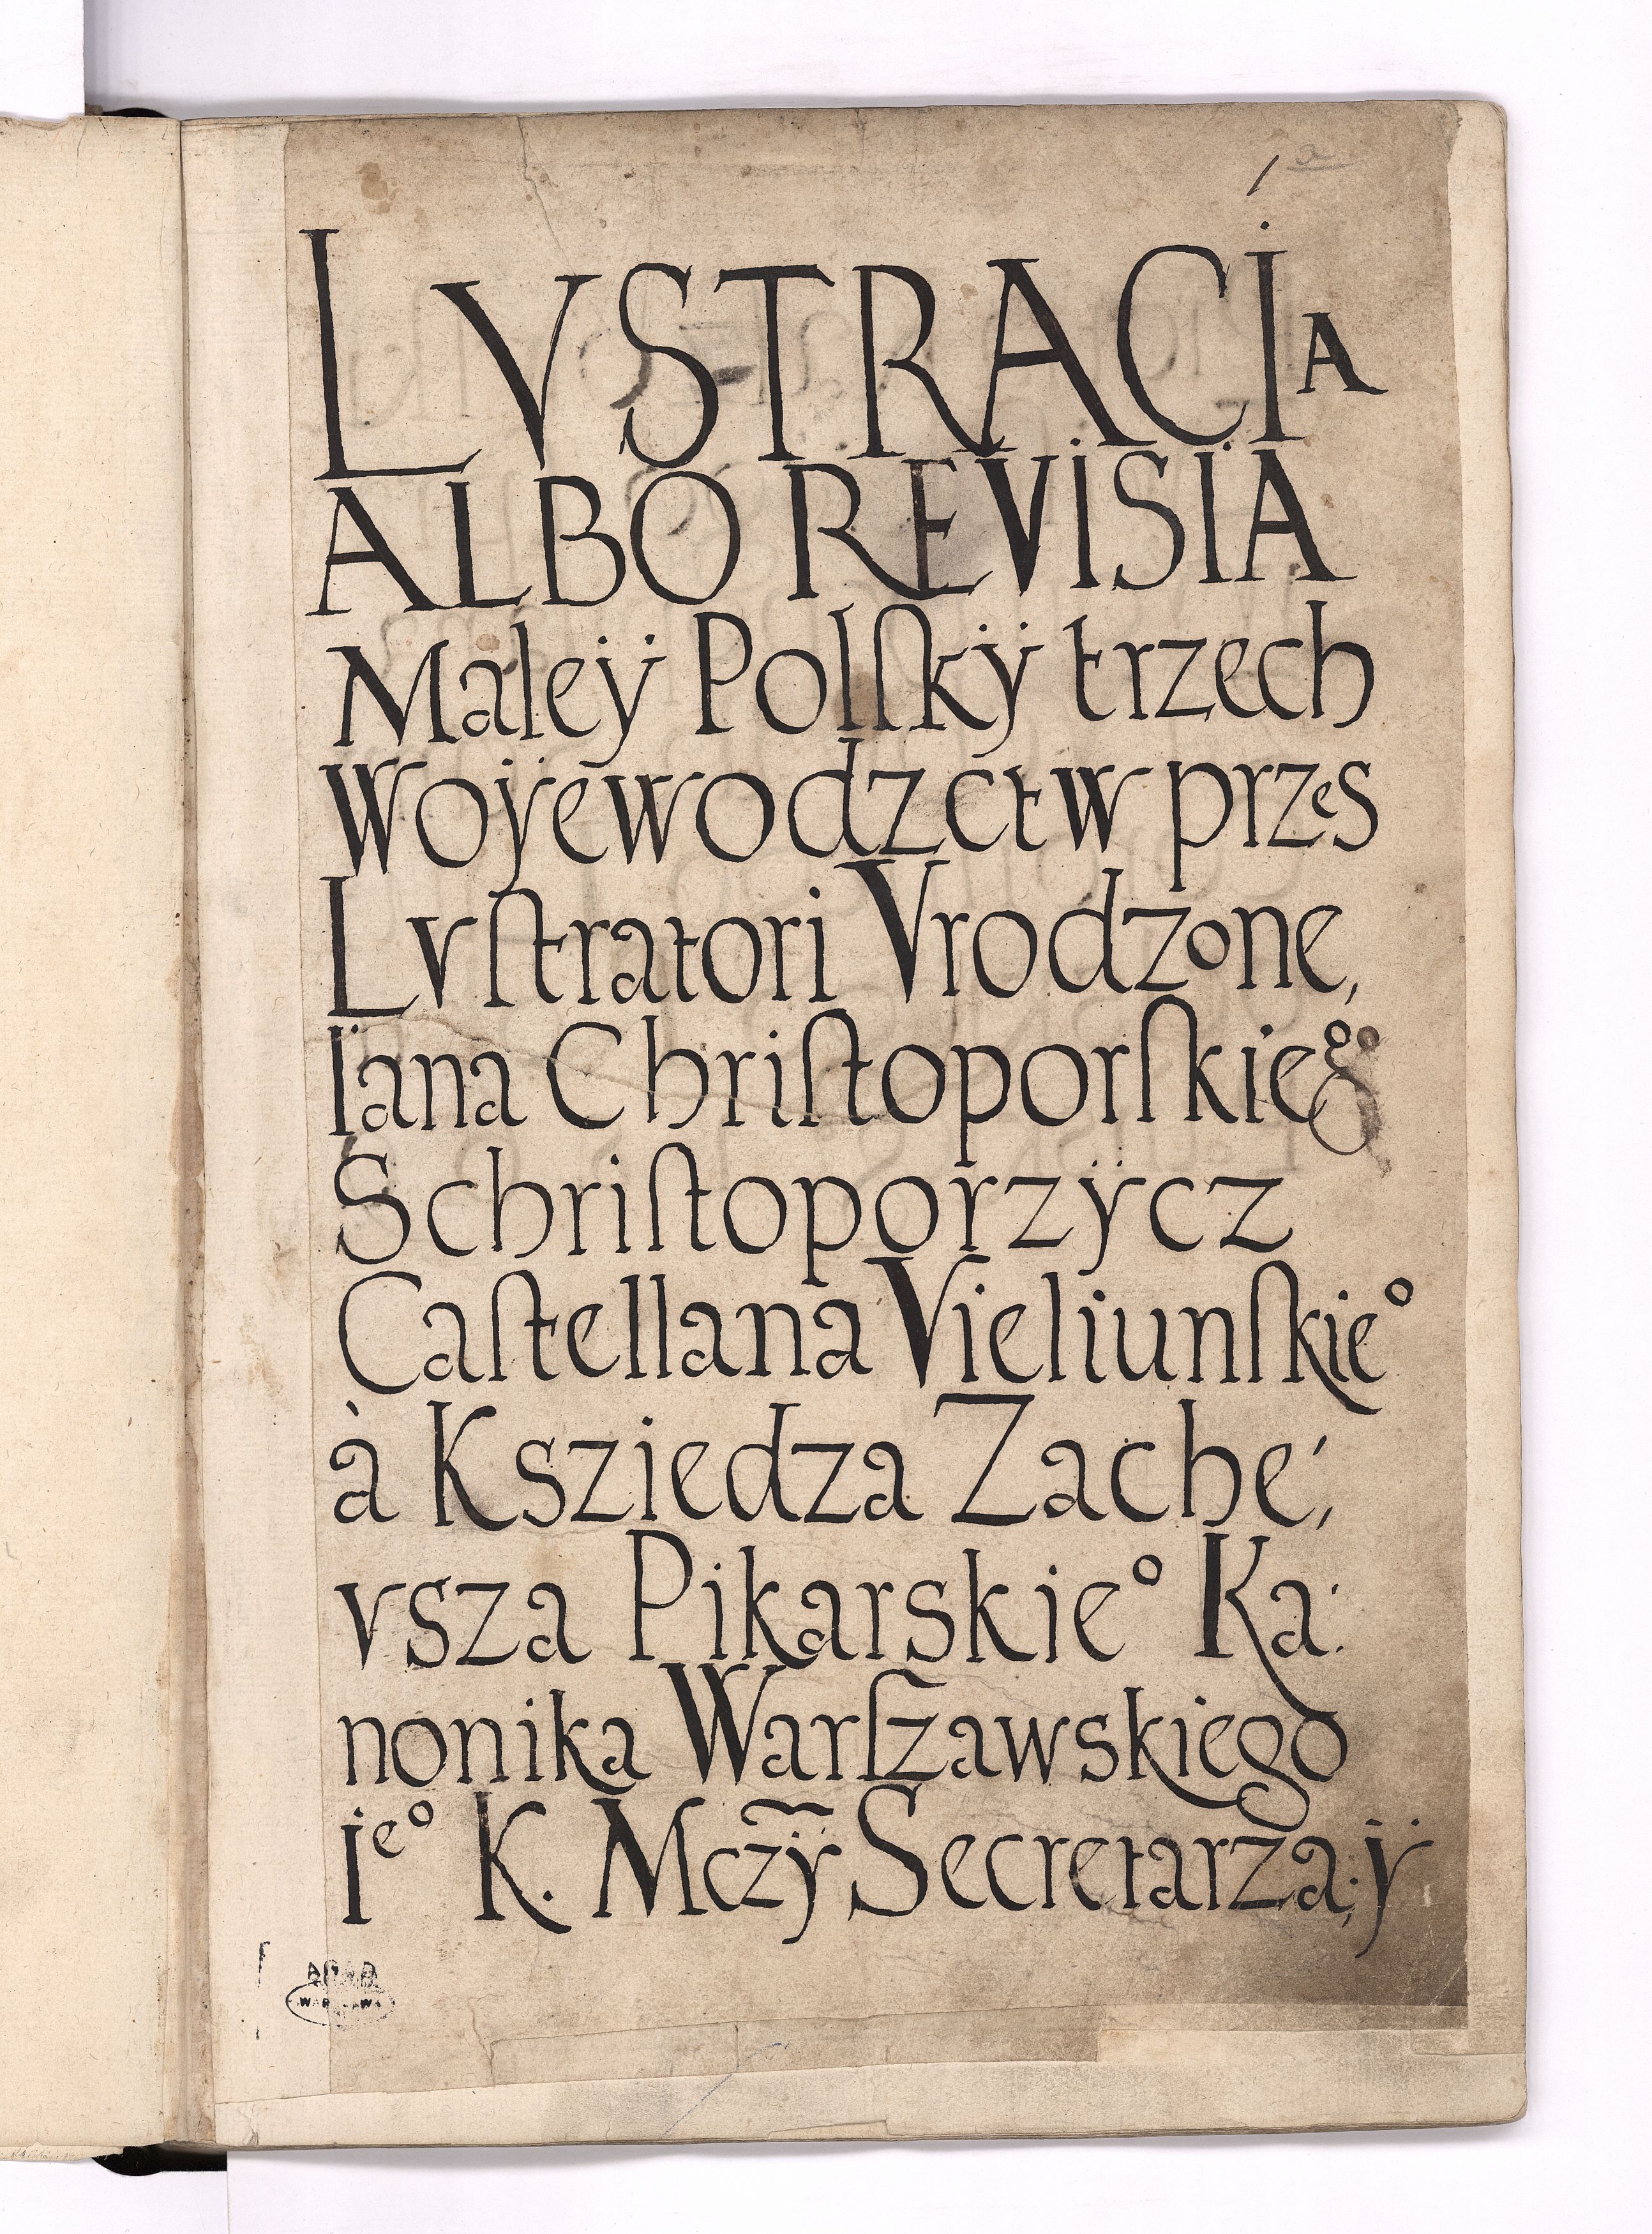 1 a
LVSTRACIA
ALBO REVISIA
Maleÿ Polſkÿ trzech
Woÿewodzctw przes
Lvſtratori Vrodzone,
Iana Chriſtoporſkieg°
Schriſtoporzÿcz
Caſtellana Vieliunſkie°
à Ksziedza Zache,
vsza Pikarskie° Ka:
nonika Warſzawskiego
Ie° K. Mczÿ Secretarza, ÿ
AGAD
WARSZAWA